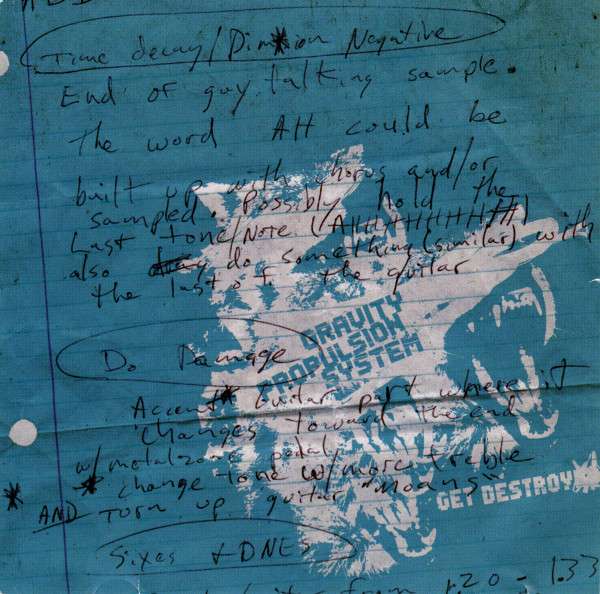 Time decay/Dimision Negative
End of guy talking sample.
The word AH could be
built up with chorus and/or
sampled. Possibly hold the
Last tone/Note (AHHHHHHHH)
also do something (similar) with
the last of the guitar
GRAVITY
PROPULSION
SYSTEM
Do Damage
Accent Guitar part where it
changes toward the end
w/ metalzone pedal,
* change tone w/ more treble
* AND Turn up guitar "moans"
GET DESTROY
Sixes + DNES
from 1:20 - 1:33